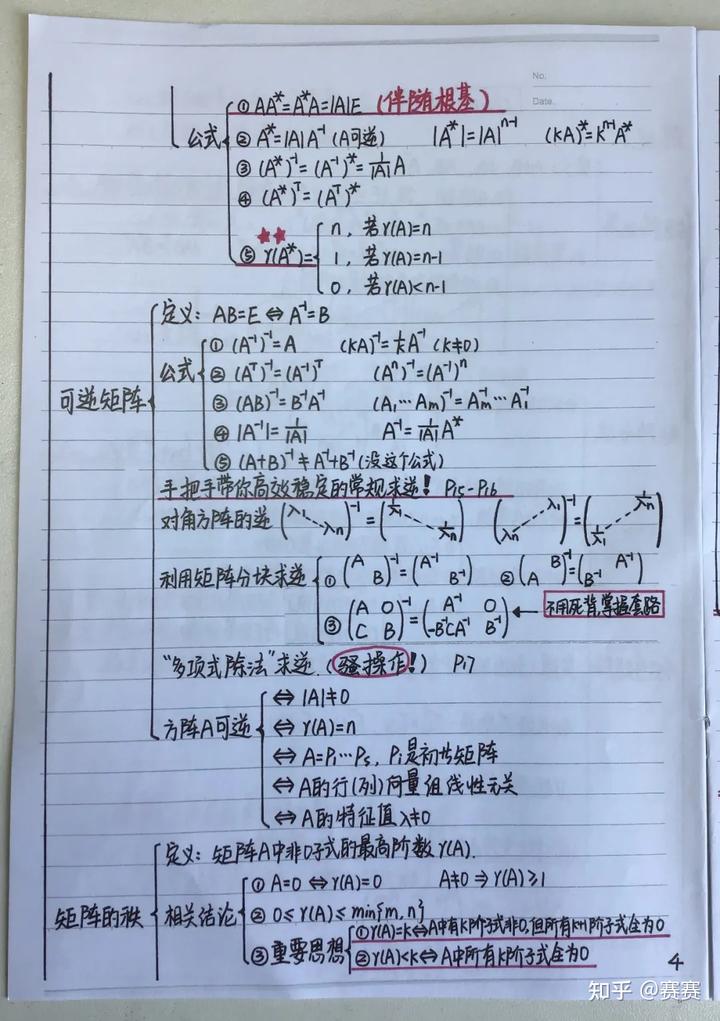 No.
Date.
公式
① AA*=A*A=|A|E (伴随根基)
② A*=|A|A⁻¹ (A可逆) |A*|=|A|ⁿ⁻¹ (kA)*=kⁿ⁻¹A*
③ (A*)⁻¹=(A⁻¹)*=1/|A| A
④ (A*)ᵀ=(Aᵀ)*
★★
⑤ r(A*)= { n, 若r(A)=n
1, 若r(A)=n-1
0, 若r(A)<n-1
可逆矩阵
定义: AB=E ⇔ A⁻¹=B
公式
① (A⁻¹)⁻¹=A (kA)⁻¹=1/k A⁻¹ (k≠0)
② (Aᵀ)⁻¹=(A⁻¹)ᵀ (Aⁿ)⁻¹=(A⁻¹)ⁿ
③ (AB)⁻¹=B⁻¹A⁻¹ (A₁…Am)⁻¹=Am⁻¹…A₁⁻¹
④ |A⁻¹|=1/|A| A⁻¹=1/|A| A*
⑤ (A+B)⁻¹≠A⁻¹+B⁻¹ (没这个公式)
手把手带你高效稳定的常规求逆! P15-P16
对角方阵的逆 (λ₁ ⋱ λn)⁻¹=(1/λ₁ ⋱ 1/λn) (λ₁ ⋰ λn)⁻¹=(1/λn ⋰ 1/λ₁)
利用矩阵分块求逆
① (A B)⁻¹=(A⁻¹ B⁻¹) ② (B A)⁻¹=(A⁻¹ B⁻¹)
③ (A O C B)⁻¹=(A⁻¹ O -B⁻¹CA⁻¹ B⁻¹) ← 不用死背,掌握套路
“多项式除法”求逆 (骚操作!) P17
方阵A可逆
⇔ |A|≠0
⇔ r(A)=n
⇔ A=P₁…Ps, Pi是初等矩阵
⇔ A的行(列)向量组线性无关
⇔ A的特征值λ≠0
矩阵的秩
定义: 矩阵A中非0子式的最高阶数r(A).
相关结论
① A=0 ⇔ r(A)=0 A≠0 ⇒ r(A)≥1
② 0≤r(A)≤min{m,n}
③ 重要思想
① r(A)=k⇔A中有k阶子式非0,但所有k+1阶子式全为0
② r(A)<k⇔A中所有k阶子式全为0
4
知乎 @赛赛